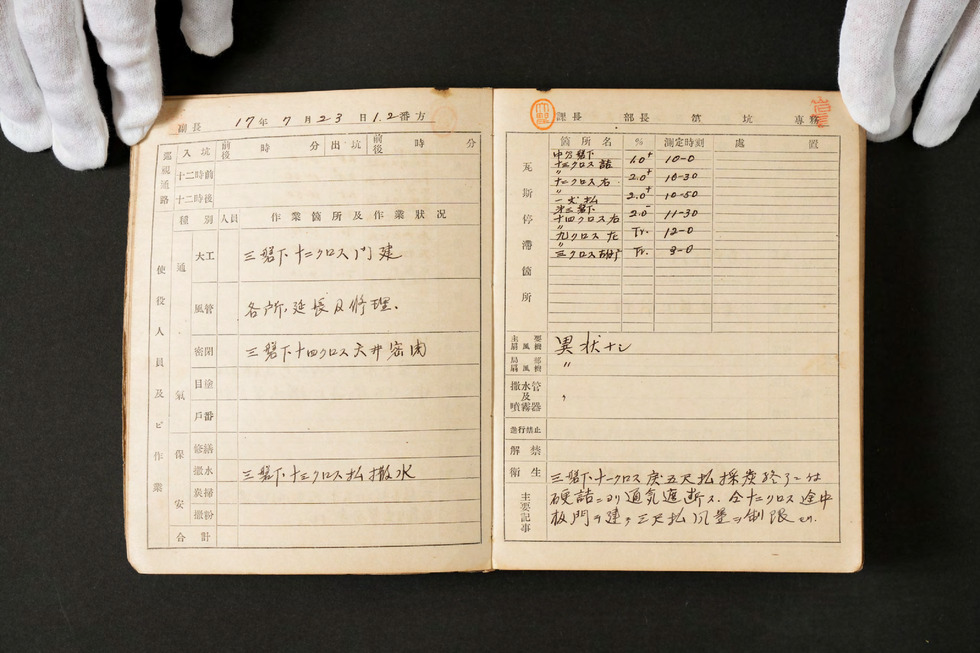 副長 17年 7月 23日 1.2番方
巡視通路 入坑 前後 時 分 出坑 前後 時 分
十二時前
十二時後
種別 人員 作業箇所及作業状况
使役人員及ビ作業
通氣
大工 三盤下十二クロス門建
風管 各所、延長及修理、
密閉 三盤下十四クロス天井密閉
目塗
戸番
保安
修繕
撒水 三盤下十三クロス払撒水
炭掃
撒粉
合計
課長 部長 坑 専務
瓦斯停滞箇所
箇所名 % 測定時刻 處置
中分盤下
十三クロス詰 1.0⁺ 10-0
〃
十二クロス右 2.0⁺ 10-30
〃
一丈払 2.0⁻ 10-50
第三盤下
十四クロス右 2.0⁻ 11-30
〃
九クロス左 Tr. 12-0
〃
三クロス Tr. 9-0
主要扇風機 異状ナシ
局部扇風機 〃
撒水管及噴霧器 〃
進行禁止
解禁
衛生
主要記事
三盤下十一クロス戻五尺払採炭終了二付
硬詰ニヨリ通気遮断ス、仝十二クロス途中
板門ヲ建テ三尺払風量ヲ制限セリ.